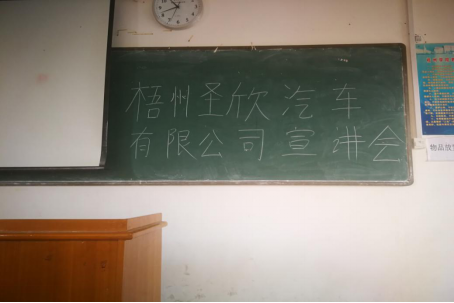 梧州圣欣汽车
有限公司宣讲会
物品放